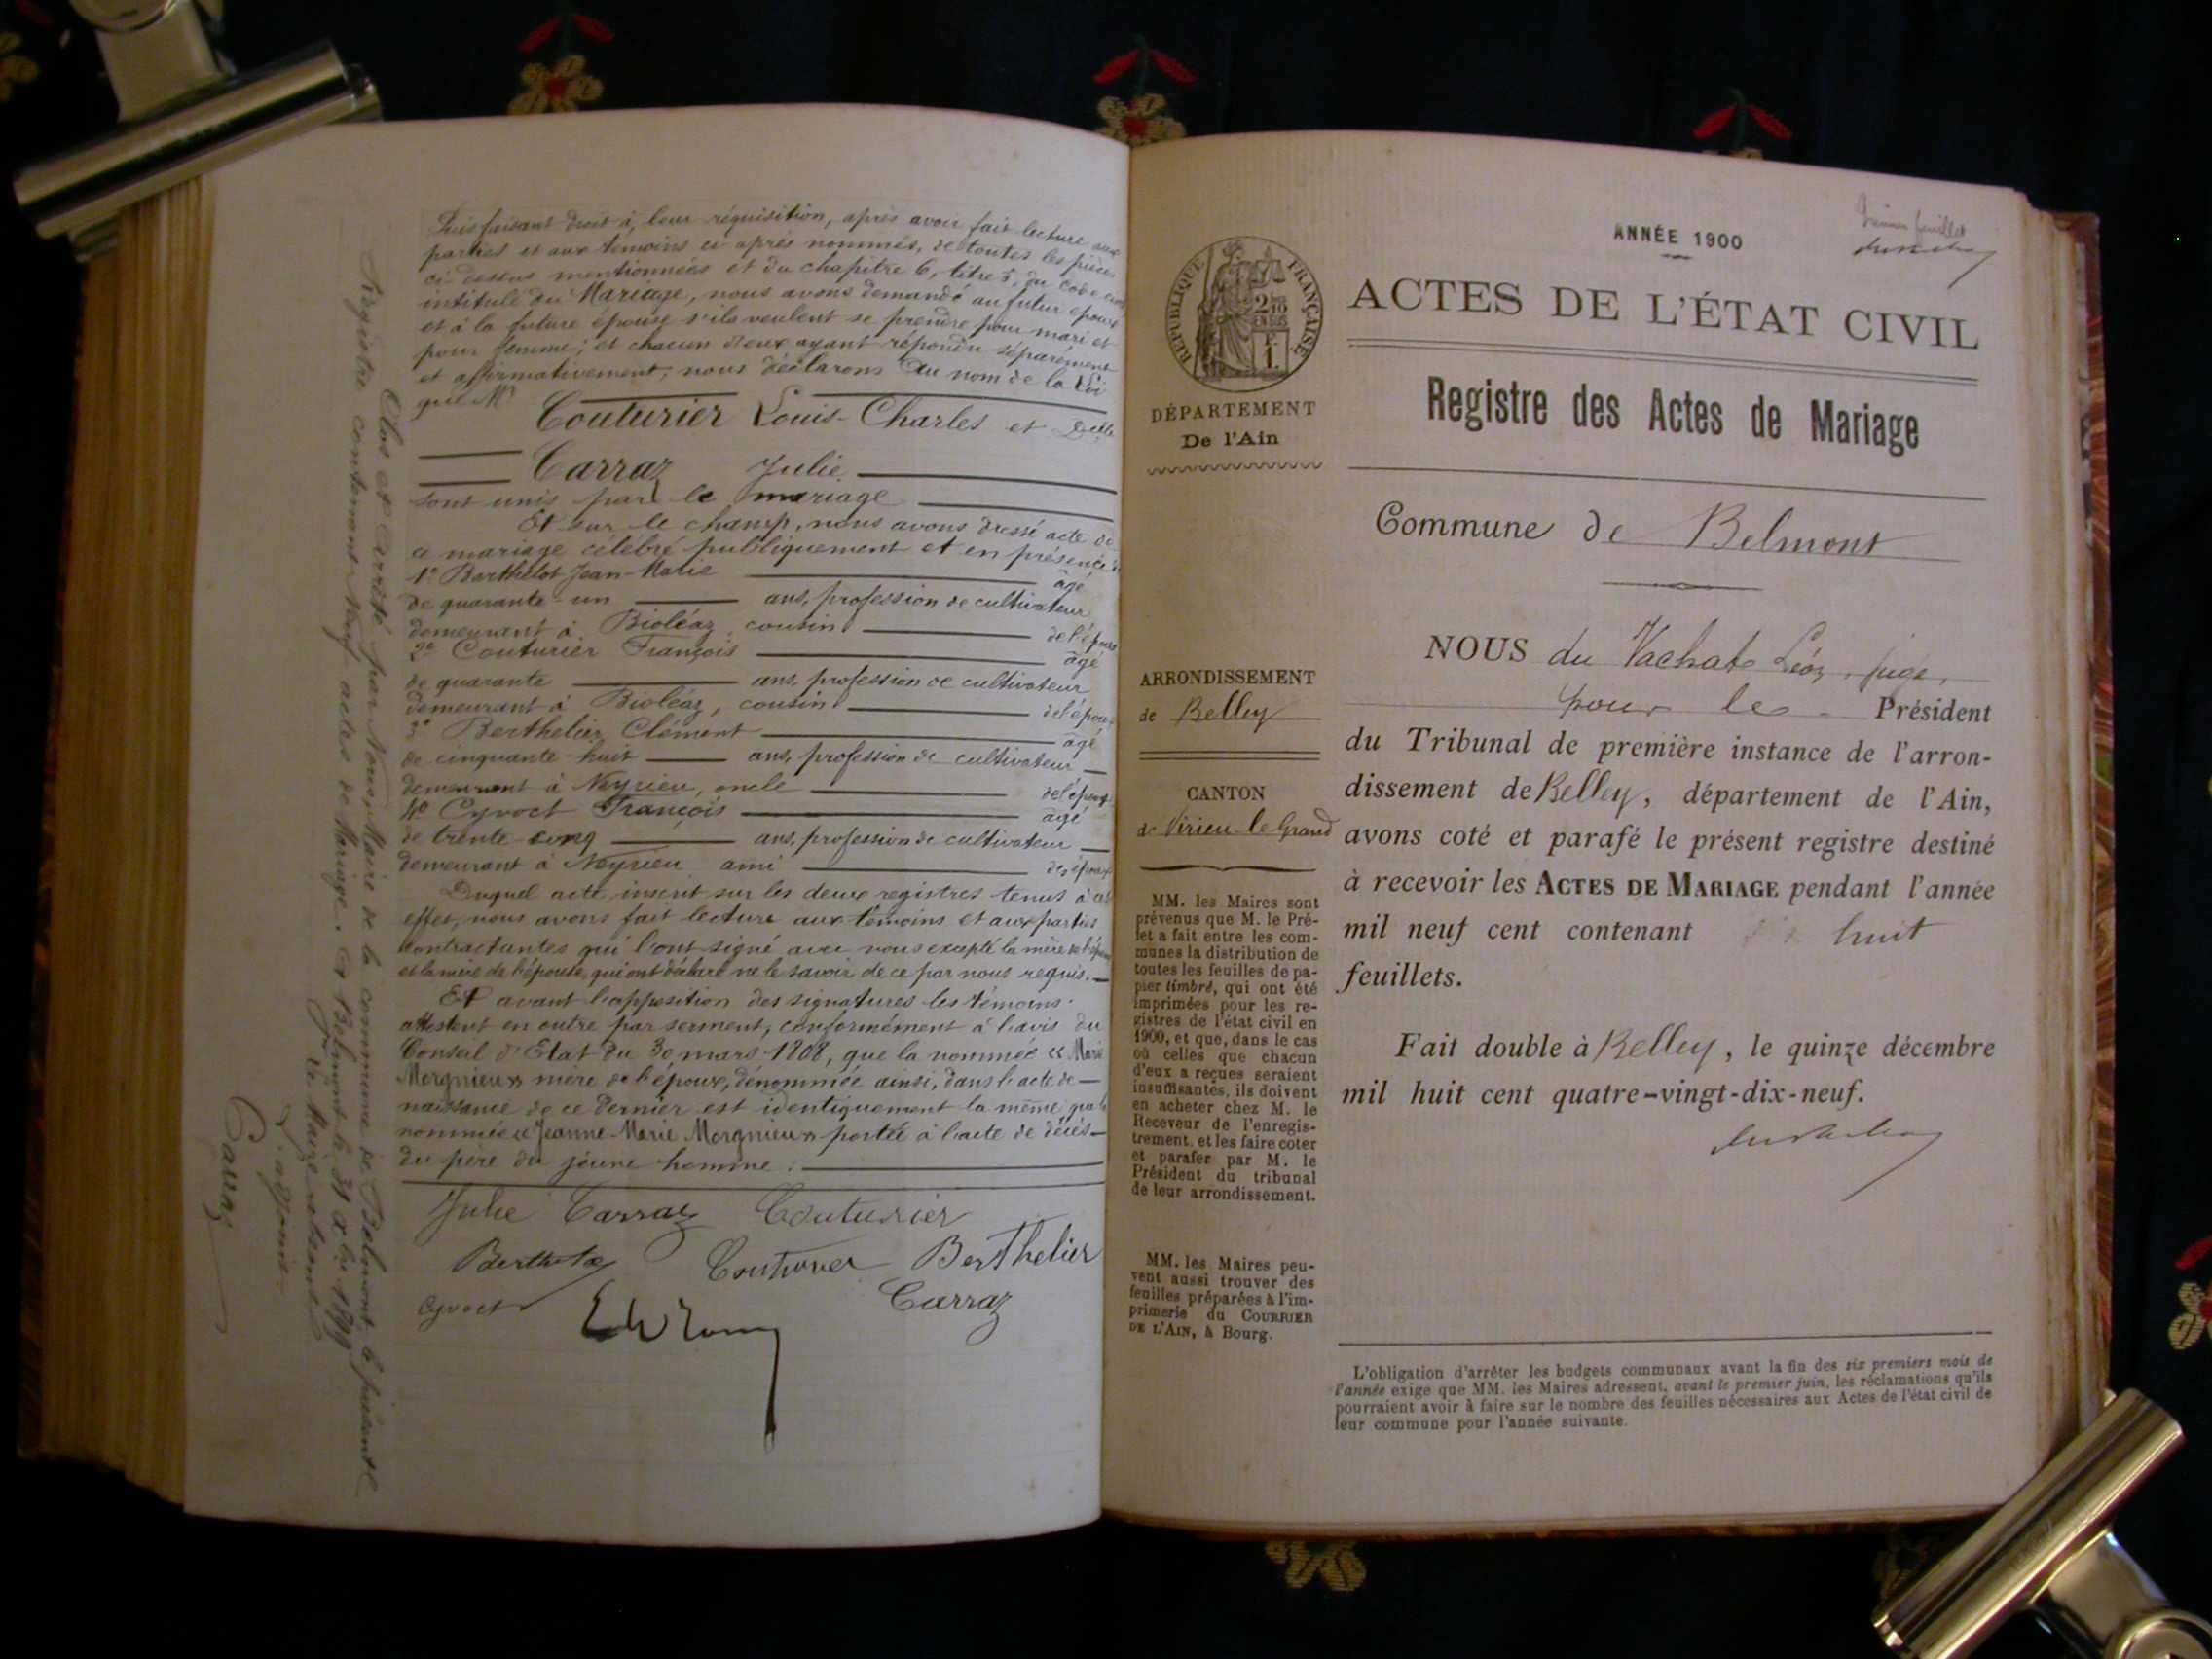 Puis faisant droit à leur réquisition, après avoir fait lecture aux
parties et aux témoins ci-après nommés, de toutes les pièces
ci-dessus mentionnées et du chapitre 6, titre 5, du Code civil
intitulé du Mariage, nous avons demandé au futur époux
et à la future épouse s'ils veulent se prendre pour mari et
pour femme; et chacun d'eux ayant répondu séparément
et affirmativement, nous déclarons au nom de la Loi
que Mr Couturier Louis-Charles et Delle
Carraz Julie
sont unis par le mariage
Et sur le champ, nous avons dressé acte de
ce mariage célébré publiquement et en présence de
1° Berthelot Jean-Marie âgé
de quarante-un ans, profession de cultivateur
demeurant à Bioléaz, cousin de l'époux
2° Couturier François âgé
de quarante ans, profession de cultivateur
demeurant à Bioléaz, cousin de l'époux
3° Berthelier Clément âgé
de cinquante-huit ans, profession de cultivateur
demeurant à Neyrieu, oncle
4° Cyvoct François âgé
de trente-cinq ans, profession de cultivateur
demeurant à Neyrieu, ami des époux
Duquel acte, inscrit sur les deux registres tenus à cet
effet, nous avons fait lecture aux témoins et aux parties
contractantes qui l'ont signé avec nous excepté la mère de l'époux
et la mère de l'épouse, qui ont déclaré ne le savoir de ce par nous requis.
Et avant l'apposition des signatures les témoins
attestent en outre par serment, conformément à l'avis du
Conseil d'Etat du 30 mars 1808, que la nommée « Marie
Morgnieux » mère de l'époux, dénommée ainsi, dans l'acte de
naissance de ce dernier est identiquement la même que la
nommée « Jeanne-Marie Morgnieux » portée à l'acte de décès
du père du jeune homme.
Julie Carraz Couturier
Berthelot Couturier Berthelier
Cyvoct Carraz
Clos et arrêté par Nous, Maire de la commune de Belmont, le présent
Registre contenant neuf actes de Mariage. A Belmont le 31 Xbre 1899
P. le Maire absent
L'adjoint
Carraz
ANNÉE 1900
Premier feuillet
RÉPUBLIQUE FRANÇAISE
ACTES DE L'ÉTAT CIVIL
Registre des Actes de Mariage
DÉPARTEMENT
De l'Ain
Commune de Belmont
ARRONDISSEMENT
de Belley
CANTON
de Virieu-le-Grand
MM. les Maires sont
prévenus que M. le Pré-
fet a fait entre les com-
munes la distribution de
toutes les feuilles de pa-
pier timbré, qui ont été
imprimées pour les re-
gistres de l'état civil en
1900, et que, dans le cas
où celles que chacun
d'eux a reçues seraient
insuffisantes, ils doivent
en acheter chez M. le
Receveur de l'enregis-
trement, et les faire coter
et parafer par M. le
Président du tribunal
de leur arrondissement.
MM. les Maires peu-
vent aussi trouver des
feuilles préparées à l'im-
primerie du COURRIER
DE L'AIN, à Bourg.
NOUS du Vachat Léon, juge,
pour le Président
du Tribunal de première instance de l'arron-
dissement de Belley, département de l'Ain,
avons coté et parafé le présent registre destiné
à recevoir les ACTES DE MARIAGE pendant l'année
mil neuf cent contenant huit
feuillets.
Fait double à Belley, le quinze décembre
mil huit cent quatre-vingt-dix-neuf.
L'obligation d'arrêter les budgets communaux avant la fin des six premiers mois de
l'année exige que MM. les Maires adressent, avant le premier juin, les réclamations qu'ils
pourraient avoir à faire sur le nombre des feuilles nécessaires aux Actes de l'état civil de
leur commune pour l'année suivante.